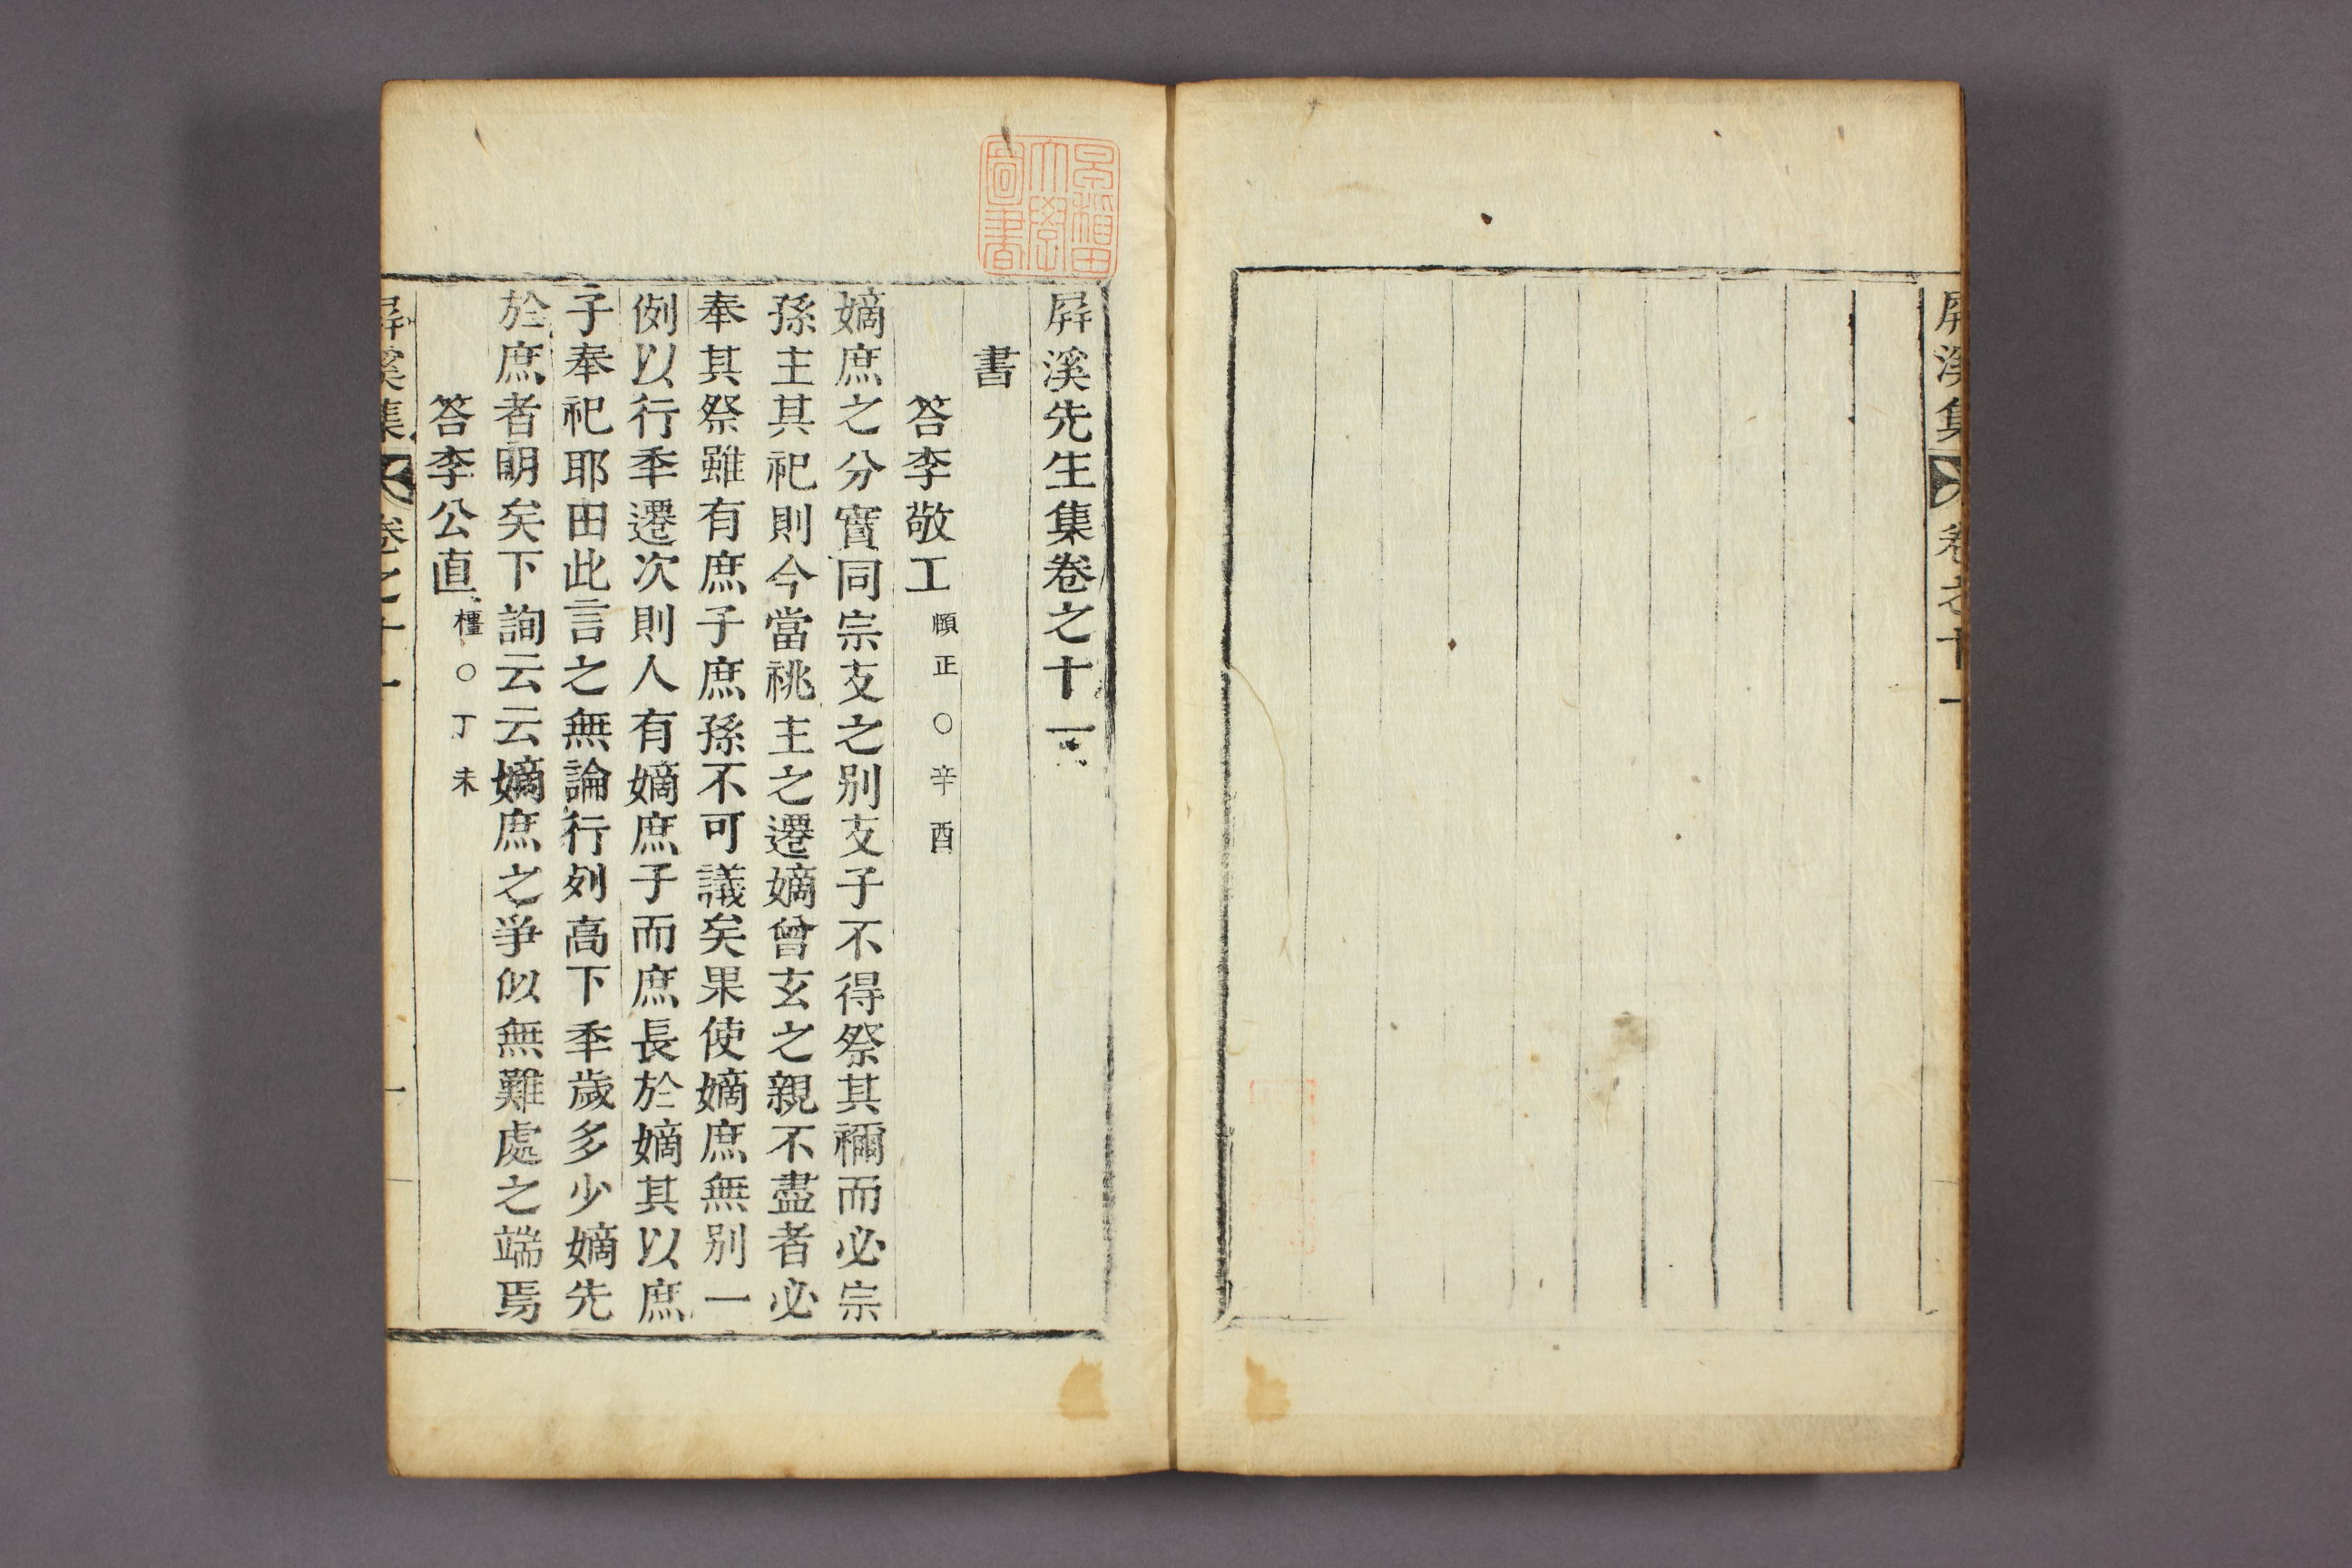 屛溪集 卷之十一
早稻田
大學
圖書
屛溪先生集卷之十一
書
答李敬工 頤正○辛酉
嫡庶之分實同宗支之別支子不得祭其禰而必宗
孫主其祀則今當祧主之遷嫡曾玄之親不盡者必
奉其祭雖有庶子庶孫不可議矣果使嫡庶無別一
例以行秊遷次則人有嫡庶子而庶長於嫡其以庶
子奉祀耶由此言之無論行列高下秊歲多少嫡先
於庶者明矣下詢云云嫡庶之爭似無難處之端焉
答李公直 橿○丁未
屛溪集 卷之十一 一